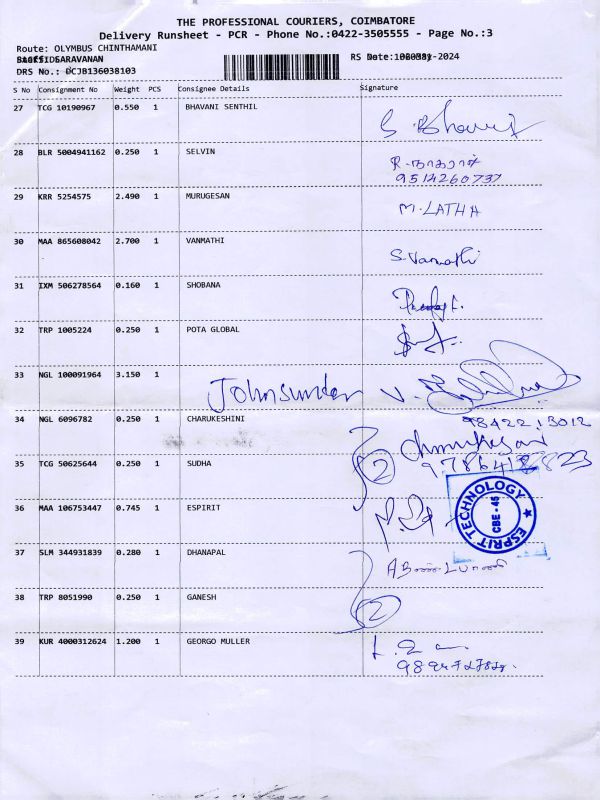 THE PROFESSIONAL COURIERS, COIMBATORE
Delivery Runsheet - PCR - Phone No.:0422-3505555 - Page No.:3
Route: OLYMBUS CHINTHAMANI
SARAVANAN
RS Date: -2024
DRS No.: DCJB136038103
S No Consignment No Weight PCS Consignee Details Signature
27 TCG 10190967 0.550 1 BHAVANI SENTHIL S. Bhavani
28 BLR 5004941162 0.250 1 SELVIN
9514260737
29 KRR 5254575 2.490 1 MURUGESAN M.LATHA
30 MAA 865608042 2.700 1 VANMATHI S.Vanmathi
31 IXM 506278564 0.160 1 SHOBANA
32 TRP 1005224 0.250 1 POTA GLOBAL
33 NGL 100091964 3.150 1 Johnsundar V.
34 NGL 6096782 0.250 1 CHARUKESHINI 98422 13012
35 TCG 50625644 0.250 1 SUDHA 2
36 MAA 106753447 0.745 1 ESPIRIT ESPRIT TECHNOLOGY CBE - 45
37 SLM 344931839 0.280 1 DHANAPAL
38 TRP 8051990 0.250 1 GANESH 2
39 KUR 4000312624 1.200 1 GEORGO MULLER